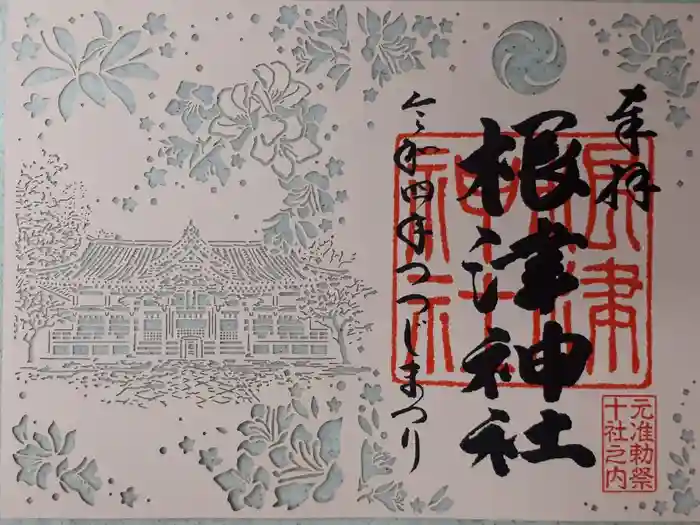 奉拝
根津神社
令和四年つつじまつり
根津
神社
元准勅祭
十社之内